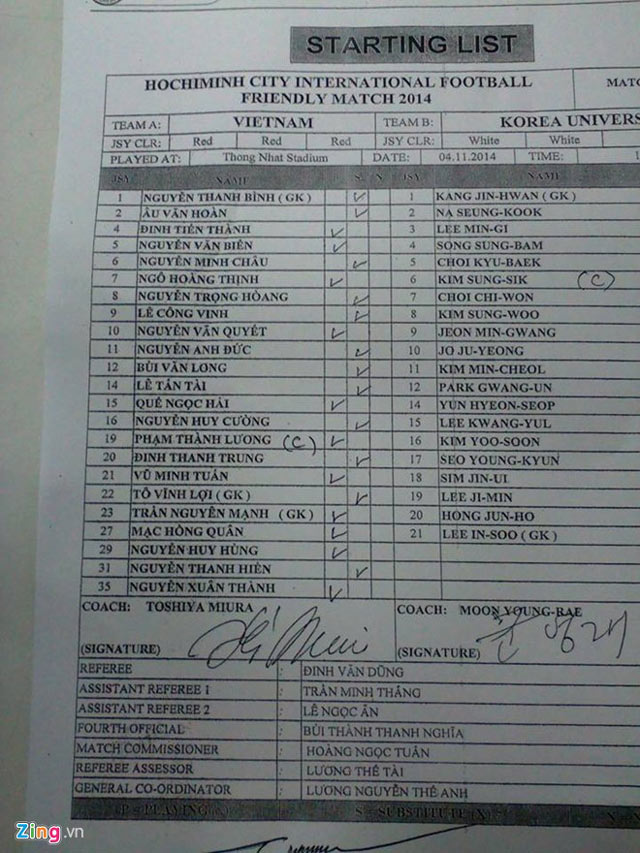 STARTING LIST
HOCHIMINH CITY INTERNATIONAL FOOTBALL
FRIENDLY MATCH 2014
MATC
TEAM A: VIETNAM TEAM B: KOREA UNIVERS
JSY CLR: Red Red Red JSY CLR: White White
PLAYED AT: Thong Nhat Stadium DATE: 04.11.2014 TIME: 1
JSY NAME S N JSY NAME
1 NGUYỄN THANH BÌNH ( GK ) 1 KANG JIN-HWAN ( GK )
2 ÂU VĂN HOÀN 2 NA SEUNG-KOOK
4 ĐINH TIẾN THÀNH 3 LEE MIN-GI
5 NGUYỄN VĂN BIỂN 4 SONG SUNG-BAM
6 NGUYỄN MINH CHÂU 5 CHOI KYU-BAEK
7 NGÔ HOÀNG THỊNH 6 KIM SUNG-SIK (C)
8 NGUYỄN TRỌNG HOÀNG 7 CHOI CHI-WON
9 LÊ CÔNG VINH 8 KIM SUNG-WOO
10 NGUYỄN VĂN QUYẾT 9 JEON MIN-GWANG
11 NGUYỄN ANH ĐỨC 10 JO JU-YEONG
12 BÙI VĂN LONG 11 KIM MIN-CHEOL
14 LÊ TẤN TÀI 12 PARK GWANG-UN
15 QUẾ NGỌC HẢI 14 YUN HYEON-SEOP
16 NGUYỄN HUY CƯỜNG 15 LEE KWANG-YUL
19 PHẠM THÀNH LƯƠNG (C) 16 KIM YOO-SOON
20 ĐINH THANH TRUNG 17 SEO YOUNG-KYUN
21 VŨ MINH TUẤN 18 SIM JIN-UI
22 TÔ VĨNH LỢI ( GK ) 19 LEE JI-MIN
23 TRẦN NGUYÊN MẠNH ( GK ) 20 HONG JUN-HO
27 MẠC HỒNG QUÂN 21 LEE IN-SOO ( GK )
29 NGUYỄN HUY HÙNG
31 NGUYỄN THANH HIỀN
35 NGUYỄN XUÂN THÀNH
COACH: TOSHIYA MIURA COACH: MOON YOUNG-RAE
(SIGNATURE) (SIGNATURE)
REFEREE : ĐINH VĂN DŨNG
ASSISTANT REFEREE 1 : TRẦN MINH THẮNG
ASSISTANT REFEREE 2 : LÊ NGỌC ÂN
FOURTH OFFICIAL : BÙI THÀNH THANH NGHĨA
MATCH COMMISSIONER : HOÀNG NGỌC TUẤN
REFEREE ASSESSOR : LƯƠNG THẾ TÀI
GENERAL CO-ORDINATOR : LƯƠNG NGUYỄN THẾ ANH
P = PLAYING S = SUBSTITUTE (X) N = N
Zing.vn